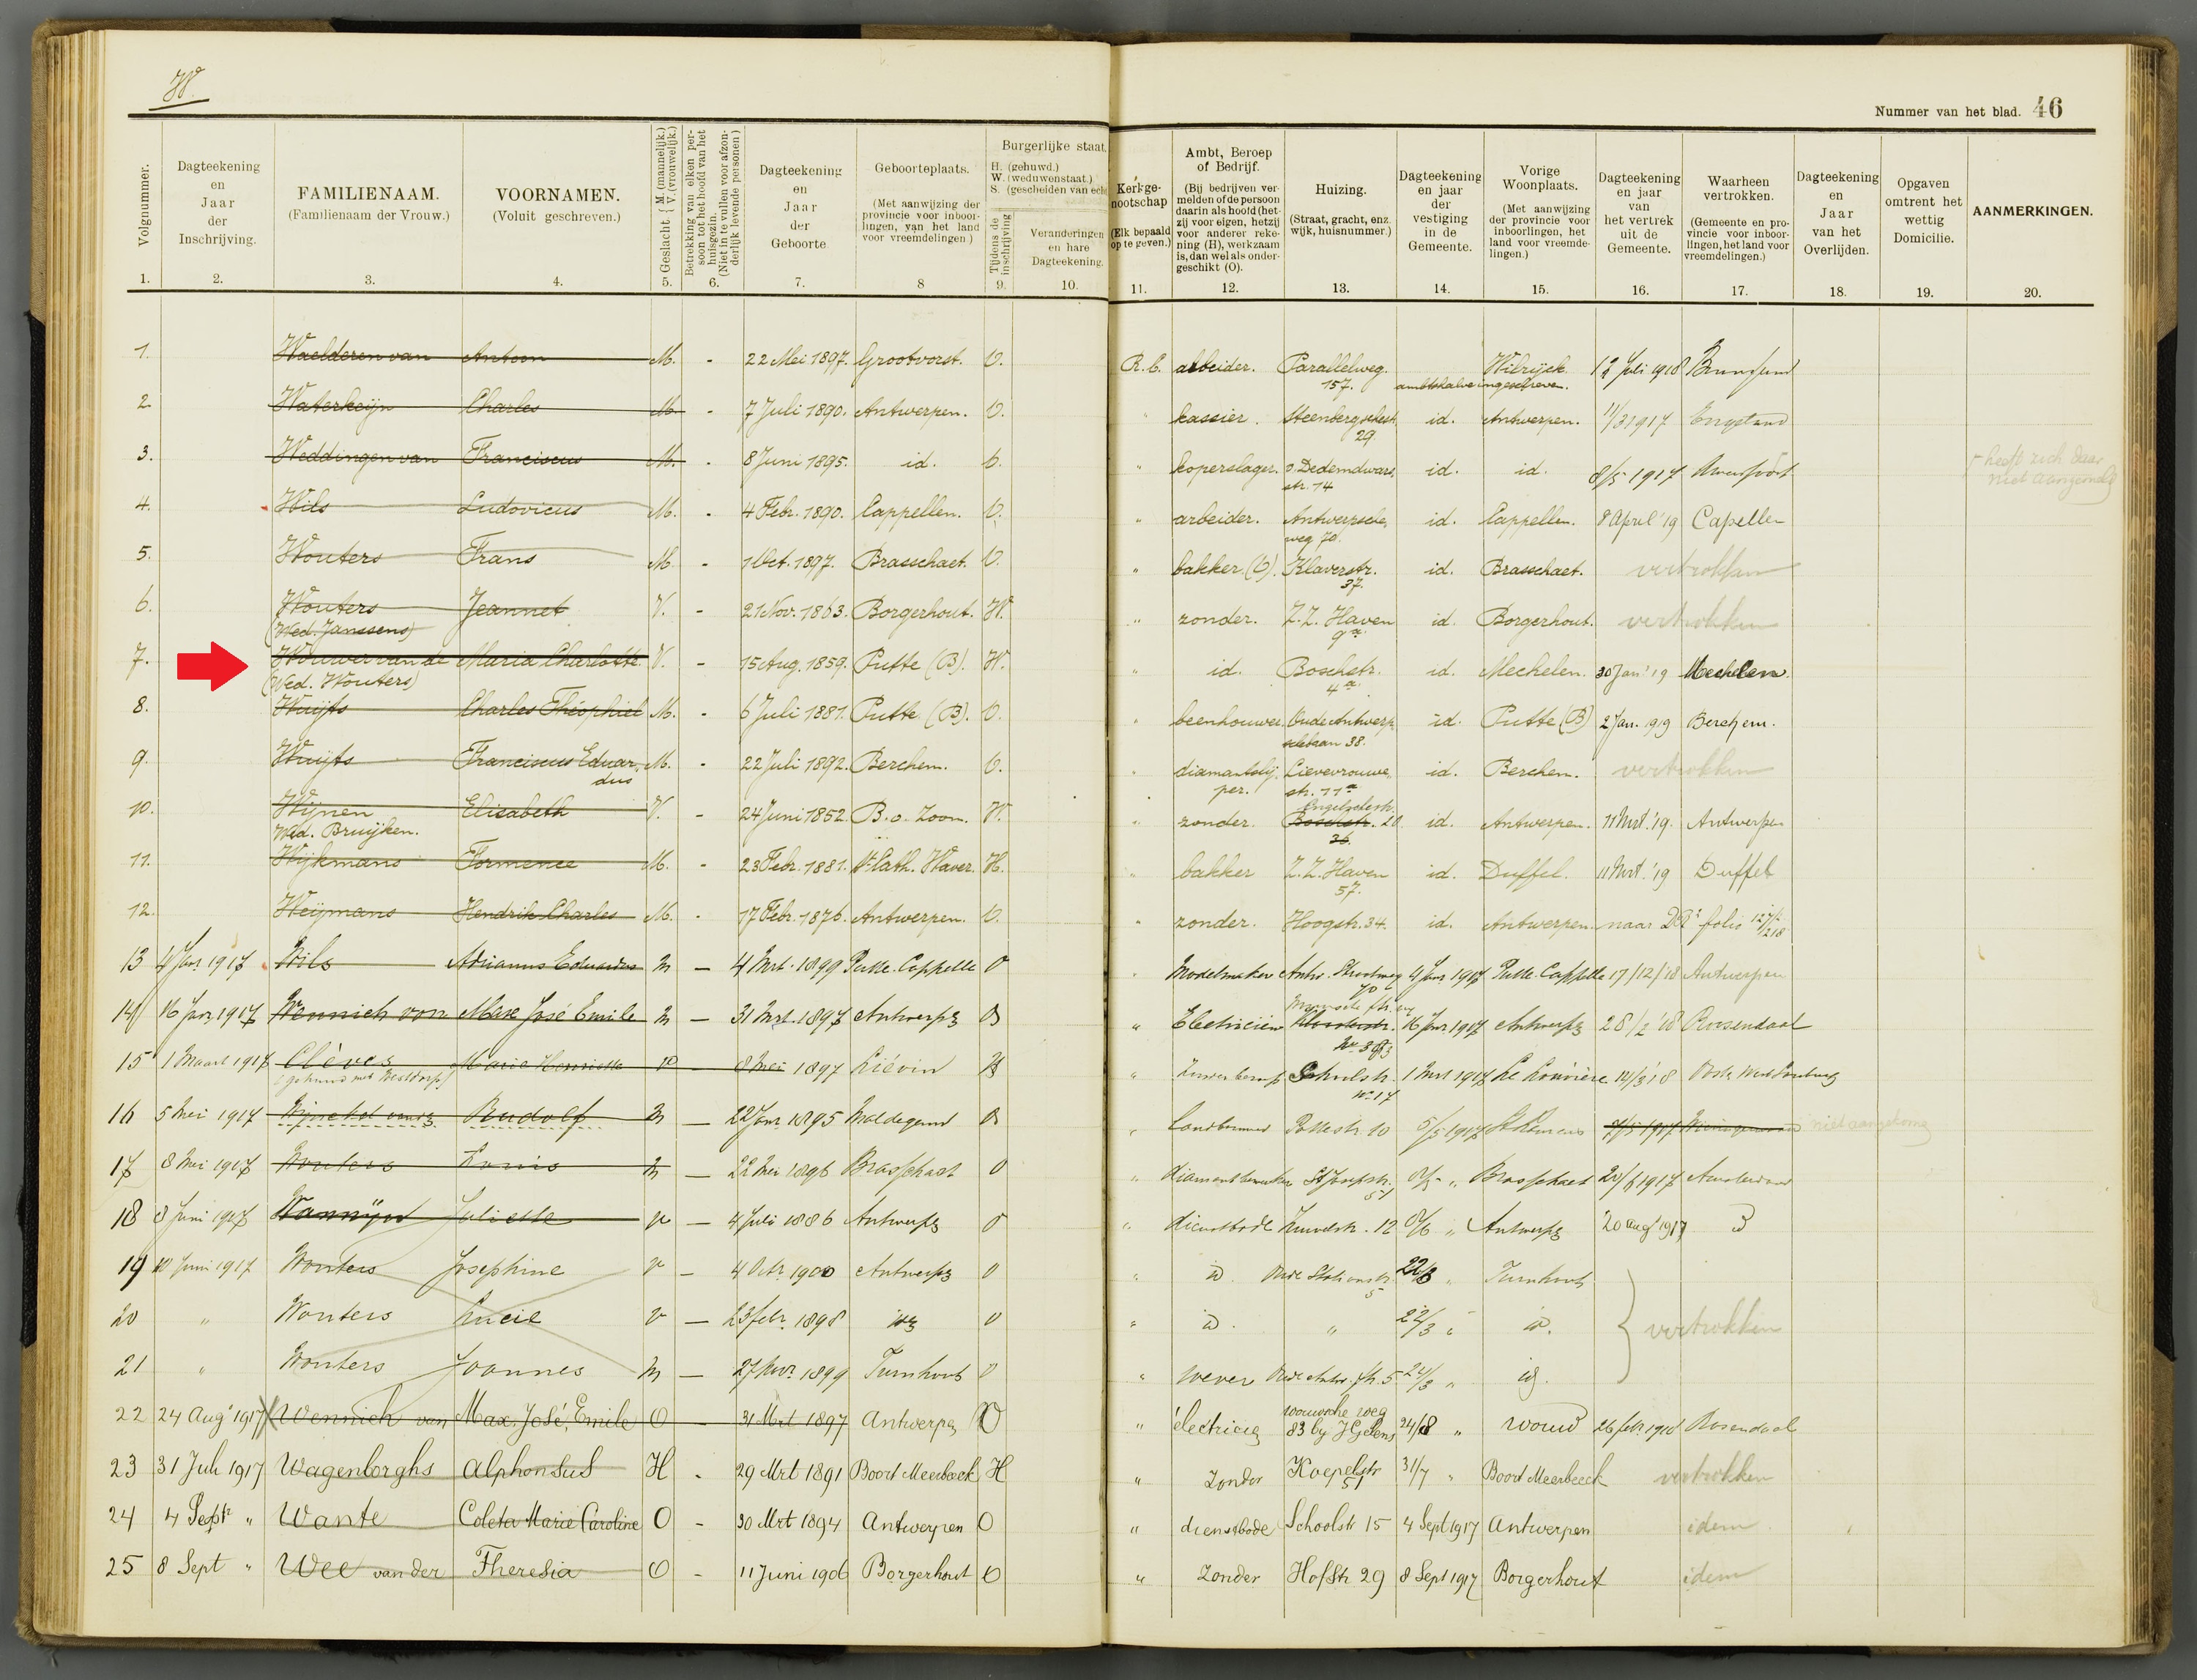 W.
Nummer van het blad. 46
Volgnummer.
1.
Dagteekening
en
Jaar
der
Inschrijving.
2.
FAMILIENAAM.
(Familienaam der Vrouw.)
3.
VOORNAMEN.
(Voluit geschreven.)
4.
Geslacht { M. (mannelijk.) V. (vrouwelijk.)
5.
Betrekking van elken per-
soon tot het hoofd van het
huisgezin.
(Niet in te vullen voor afzon-
derlijk levende personen)
6.
Dagteekening
en
Jaar
der
Geboorte
7.
Geboorteplaats.
(Met aanwijzing der
provincie voor inboor-
lingen, van het land
voor vreemdelingen)
8
Burgerlijke staat.
H. (gehuwd.)
W. (weduwenstaat.)
S. (gescheiden van echt
Tijdens de
inschrijving
9.
Veranderingen
en hare
Dagteekening.
10.
Kerkge-
nootschap
(Elk bepaald
op te geven.)
11.
Ambt, Beroep
of Bedrijf.
(Bij bedrijven ver-
melden of de persoon
daarin als hoofd (het-
zij voor eigen, hetzij
voor anderer reke-
ning (H), werkzaam
is, dan wel als onder-
geschikt (O).
12.
Huizing.
(Straat, gracht, enz.
wijk, huisnummer.)
13.
Dagteekening
en jaar
der
vestiging
in de
Gemeente.
14.
Vorige
Woonplaats.
(Met aanwijzing
der provincie voor
inboorlingen, het
land voor vreemde-
lingen.)
15.
Dagteekening
en jaar
van
het vertrek
uit de
Gemeente.
16.
Waarheen
vertrokken.
(Gemeente en pro-
vincie voor inboor-
lingen, het land voor
vreemdelingen.)
17.
Dagteekening
en
Jaar
van het
Overlijden.
18.
Opgaven
omtrent het
wettig
Domicilie.
19.
AANMERKINGEN.
20.
1. Waelderen van Antoon M. - 22 Mei 1897. Grootvorst. O. R.C. arbeider. Parallelweg. 157. ambtshalve ingeschreven. Wilrijck 12 Juli 1918
2. Waterkeijn Charles M. - 7 Juli 1890. Antwerpen. O. " kassier. Steenbergschestr. 29 id. Antwerpen. 11/3 1917 Engeland
3. Weddingen van Franciscus M. - 8 Juni 1895. id. O. " koperslager. v. Dedemdwars str. 14 id. id. 8/5 1917 Amersfoort heeft zich daar niet aangemeld
4. Wils Ludovicus M. - 4 Febr. 1890. Cappellen. O. " arbeider. Antwerpsche weg 70. id. Cappellen. 8 April '19 Capellen
5. Wouters Frans M. - 1 Oct. 1897. Brasschaet. O. " bakker (O). Klaverstr. 37. id. Brasschaet. vertrokken
6. Wouters Jeannet V. - 21 Nov. 1863. Borgerhout. W. " zonder. Z.Z. Haven 9a. id. Borgerhout. vertrokken
(Wed. Janssens)
7. Wouwer van de Maria Charlotte V. - 15 Aug. 1859. Putte (B). W. " id. Boschstr. 4a. id. Mechelen. 30 Jan '19 Mechelen
(Wed. Wouters)
8. Wuijts Charles Théophiel M. - 6 Juli 1881. Putte (B). O. " beenhouwer Oude Antwerp schebaan 38. id. Putte (B) 2 Jan. 1919 Berchem.
9. Wuijts Franciscus Eduardus M. - 22 Juli 1892. Berchem. O. " diamantslijper. Lievevrouwe str. 11a id. Berchem. vertrokken
10. Wijnen Elisabeth V. - 24 Juni 1852. B.o. Zoom. W. " zonder. Engelschestr. 20 Boschstr. 36. id. Antwerpen. 11 Mrt. '19. Antwerpen
Wed. Bruijken.
11. Wijkmans M. - 23 Febr. 1881. St. Cath. Waver. H. " bakker Z.Z. Haven 57. id. Duffel. 11 Mrt. '19 Duffel
12. Weijmans Hendrik Charles M. - 17 Febr. 1876. Antwerpen. O. " zonder. Hoogstr. 34. id. Antwerpen. naar folio
13 4 Jan 1917 Wils Adrianus Eduardus M - 4 Mrt. 1899 Putte Cappelle O " Modelmaker Antw. Straatweg 70 4 Jan 1917 Putte Cappelle 17/12/18 Antwerpen
14 16 Jan 1917 Wennich von Max José Emile M - 31 Mrt. 1897 Antwerpen O " Electriciën 16 Jan 1917 Antwerpen 28/2 '18 Roosendaal
15 1 Maart 1917 Clèves Marie Henriette V - 8 Mei 1897 Liévin " Schoolstr. no 17 1 Mrt 1917 La Louvière 14/3 '18
16 5 Mei 1917 Rudolf M - 22 Jan 1895 Maldegem O " Landbouwer Puttestr. 10 5/5 1917 niet aangekomen
17 8 Mei 1917 Wouters Louis M - 22 Mei 1896 Brasschaat O " diamantbewerker St Josephstr. 51 8/5 " Brasschaet 20/6 1917 Amsterdam
18 8 Juni 1917 Wannijn Juliette V - 4 Juli 1886 Antwerpen O " dienstbode 12 8/6 " Antwerpen 20 Aug 1917
19 10 Juni 1917 Wouters Josephine V - 4 Octr. 1900 Antwerpen O " id. Oude Stationstr. 5 22/3 " Turnhout
20 " Wouters Lucie V - 23 febr. 1898 id O " id. " 22/3 " id. vertrokken
21 " Wouters Joannes M - 27 Nov. 1899 Turnhout O " wever 5 22/3 " id.
22 24 Aug 1917 Wennich van Max. José, Emile O - 31 Mrt 1897 Antwerpen O " électricien wouwsche weg 83 by 24/8 " wouw 26 febr. 1918 Rosendaal
23 31 Juli 1917 Wagenborghs Alphonsus H - 29 Mrt 1891 Boort Meerbeek H " Zonder Koepelstr 51 31/7 " Boort Meerbeeck vertrokken
24 4 Septr " Wante Coleta Marie Caroline O - 30 Mrt 1894 Antwerpen O " dienstbode Schoolstr 15 4 Sept 1917 Antwerpen idem
25 8 Sept " Wee van der Theresia O - 11 Juni 1906 Borgerhout O " Zonder Hofstr 29 8 Sept 1917 Borgerhout idem